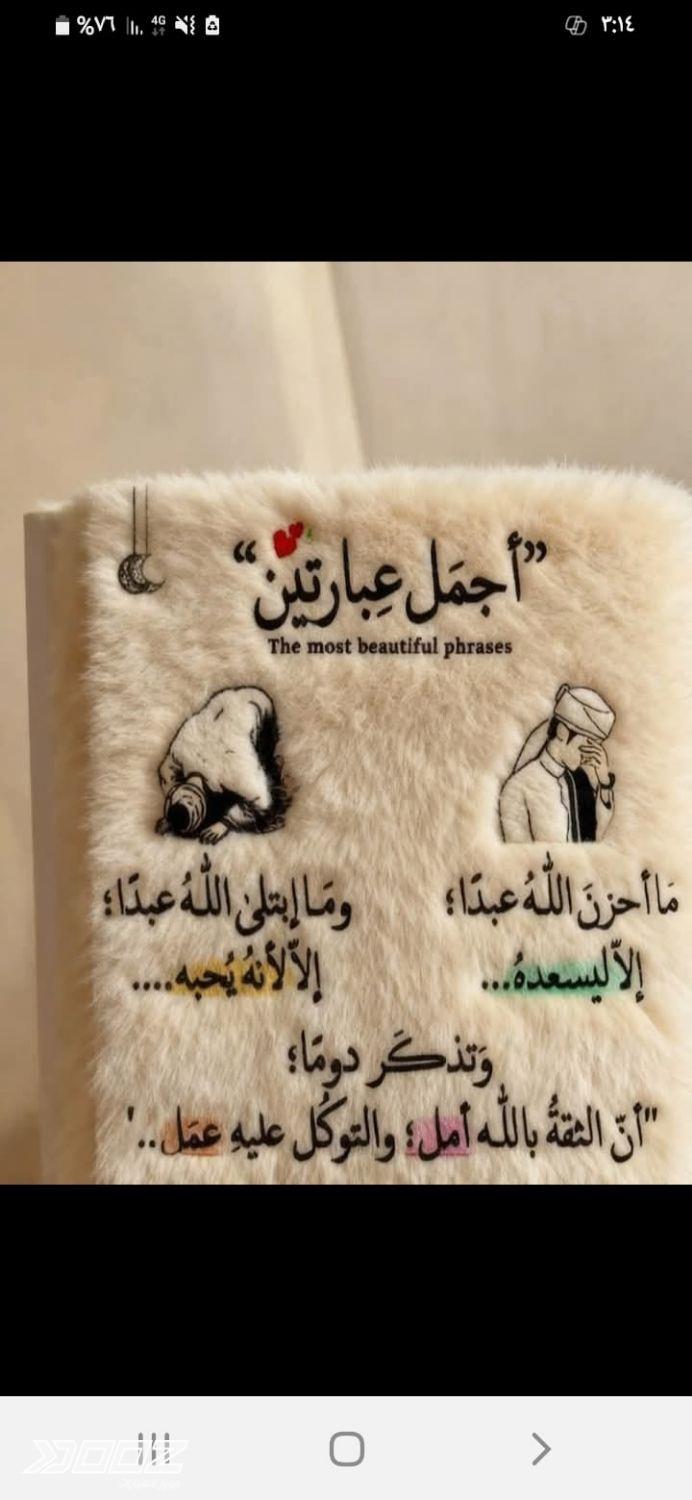 %٧٦ 4G ٣:١٤
"أجمَل عِبارتين"
The most beautiful phrases
مَا أحزنَ اللّٰهُ عبدًا؛
إلاّ ليسعدهُ...
ومَا إبتلىٰ اللّٰهُ عبدًا؛
إلاّ لأنهُ يُحبه....
وَتذكَر دومًا؛
"أنّ الثقةُ باللّٰه أمل؛ والتوكُل عليهِ عمَل..'
XOOZ